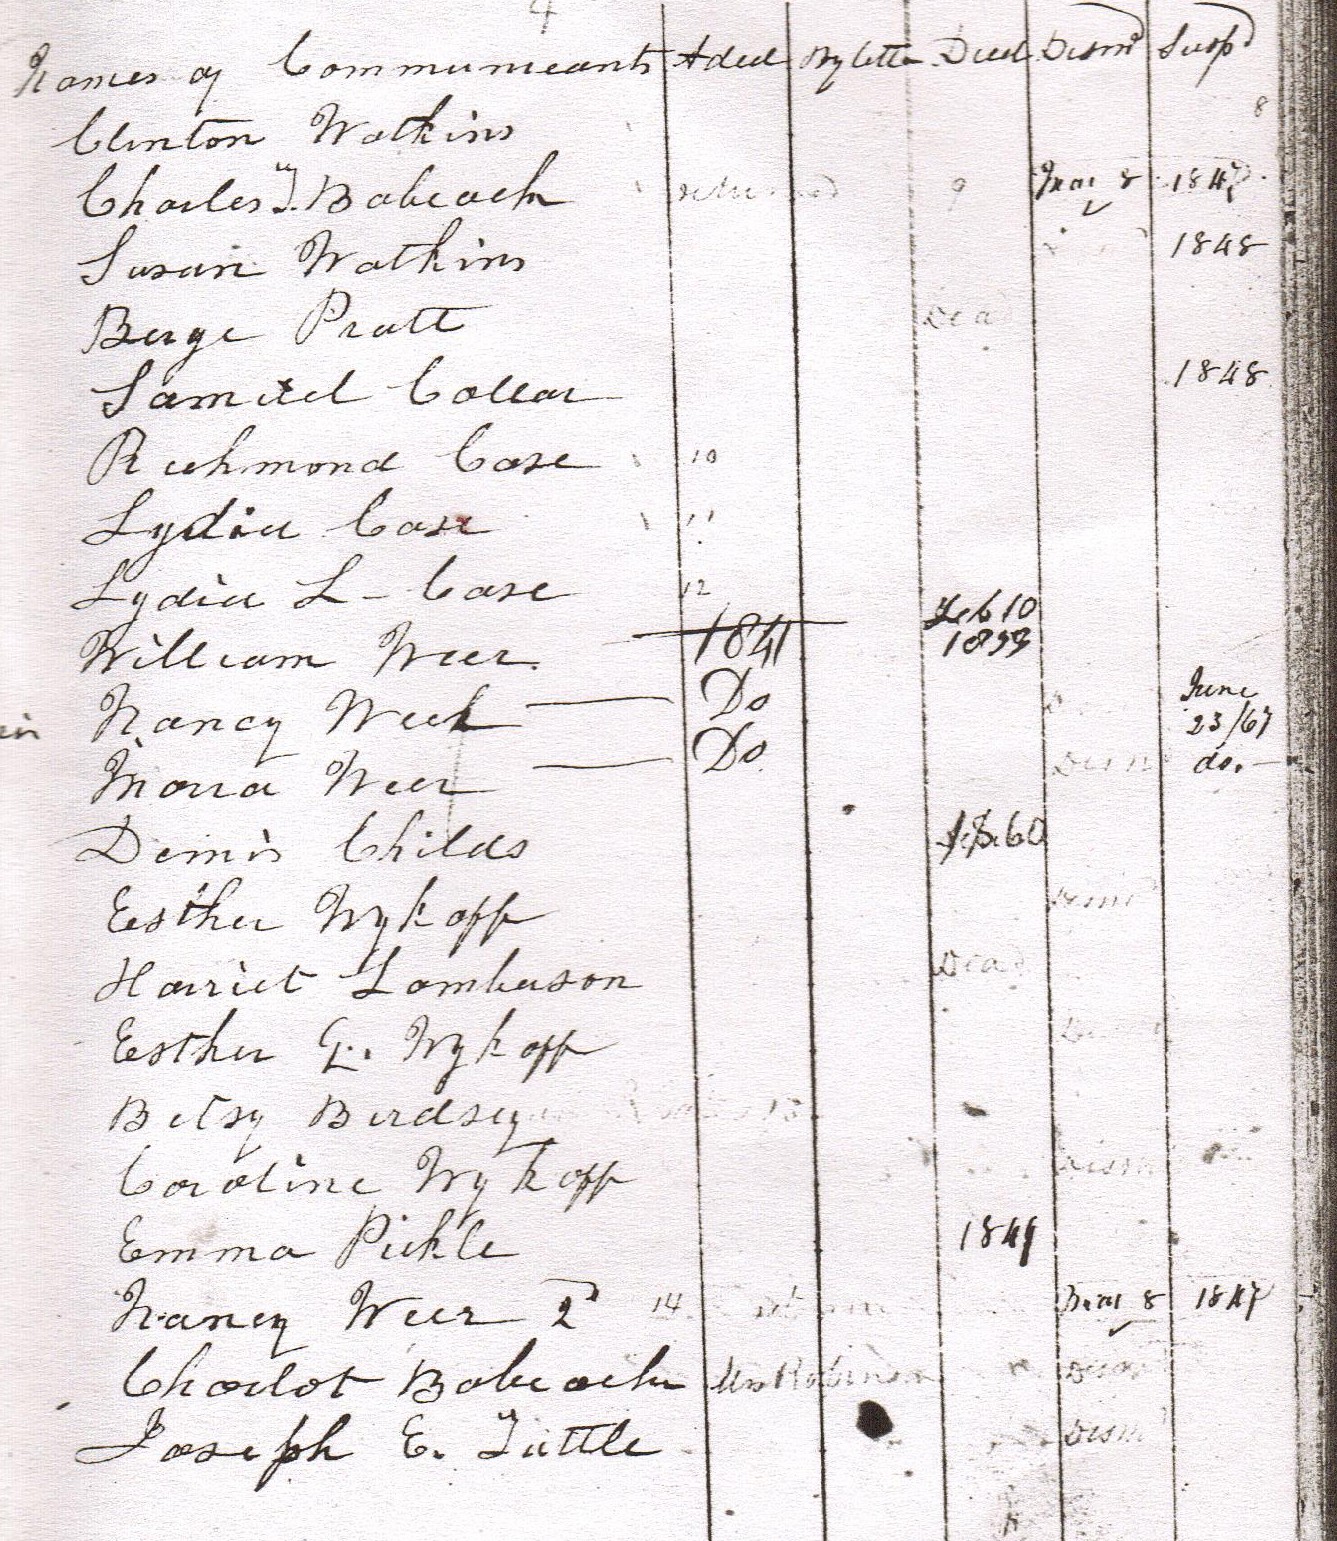 4
Names of Communicants Aded By letter Died Dismd Suspd
8
Clinton Watkins
Charles T. Babcock returned 9 Mar 8 1847
Susan Watkins 1848
Pratt Dead
Samuel Collar 1848
Richmond Case 10
Lydia Case 11
Lydia L - Case 12
William Weer. 1841 Feb 10
Nancy Weer Do June 23/67
Maria Weer Do Dism do.
Childs 60
Esther Wykoff Dismd
Harriet Lamberson Dead
Esther E. Wykoff
Betsy Birdsey
Caroline Wykoff Dism
Emma Pickle 1849
Nancy Weer 2d 14 Mar 8 1847
Charlot Babcock Mrs Robinson
Joseph E. Tuttle Dismd